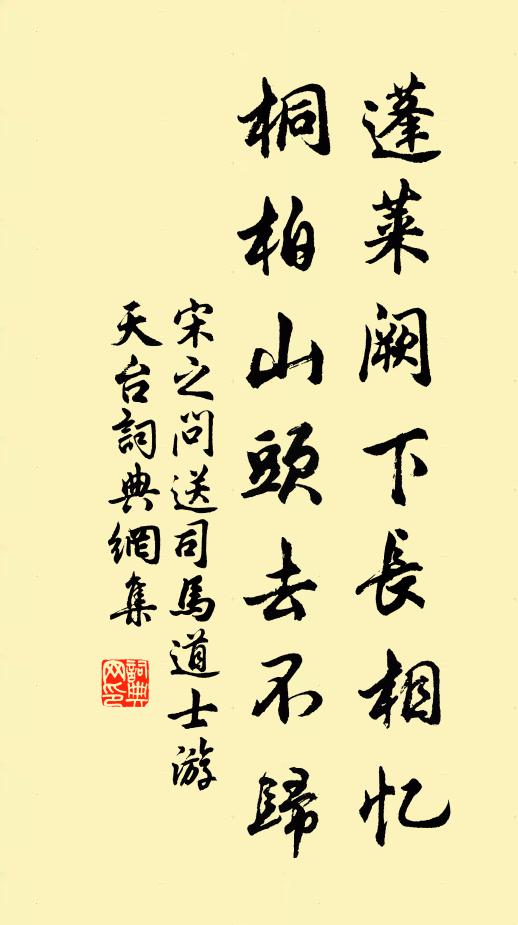 蓬莱阙下長相忆
桐柏山頭去不歸
宋之问送司馬道士游
天台詞典網集
詞典网印